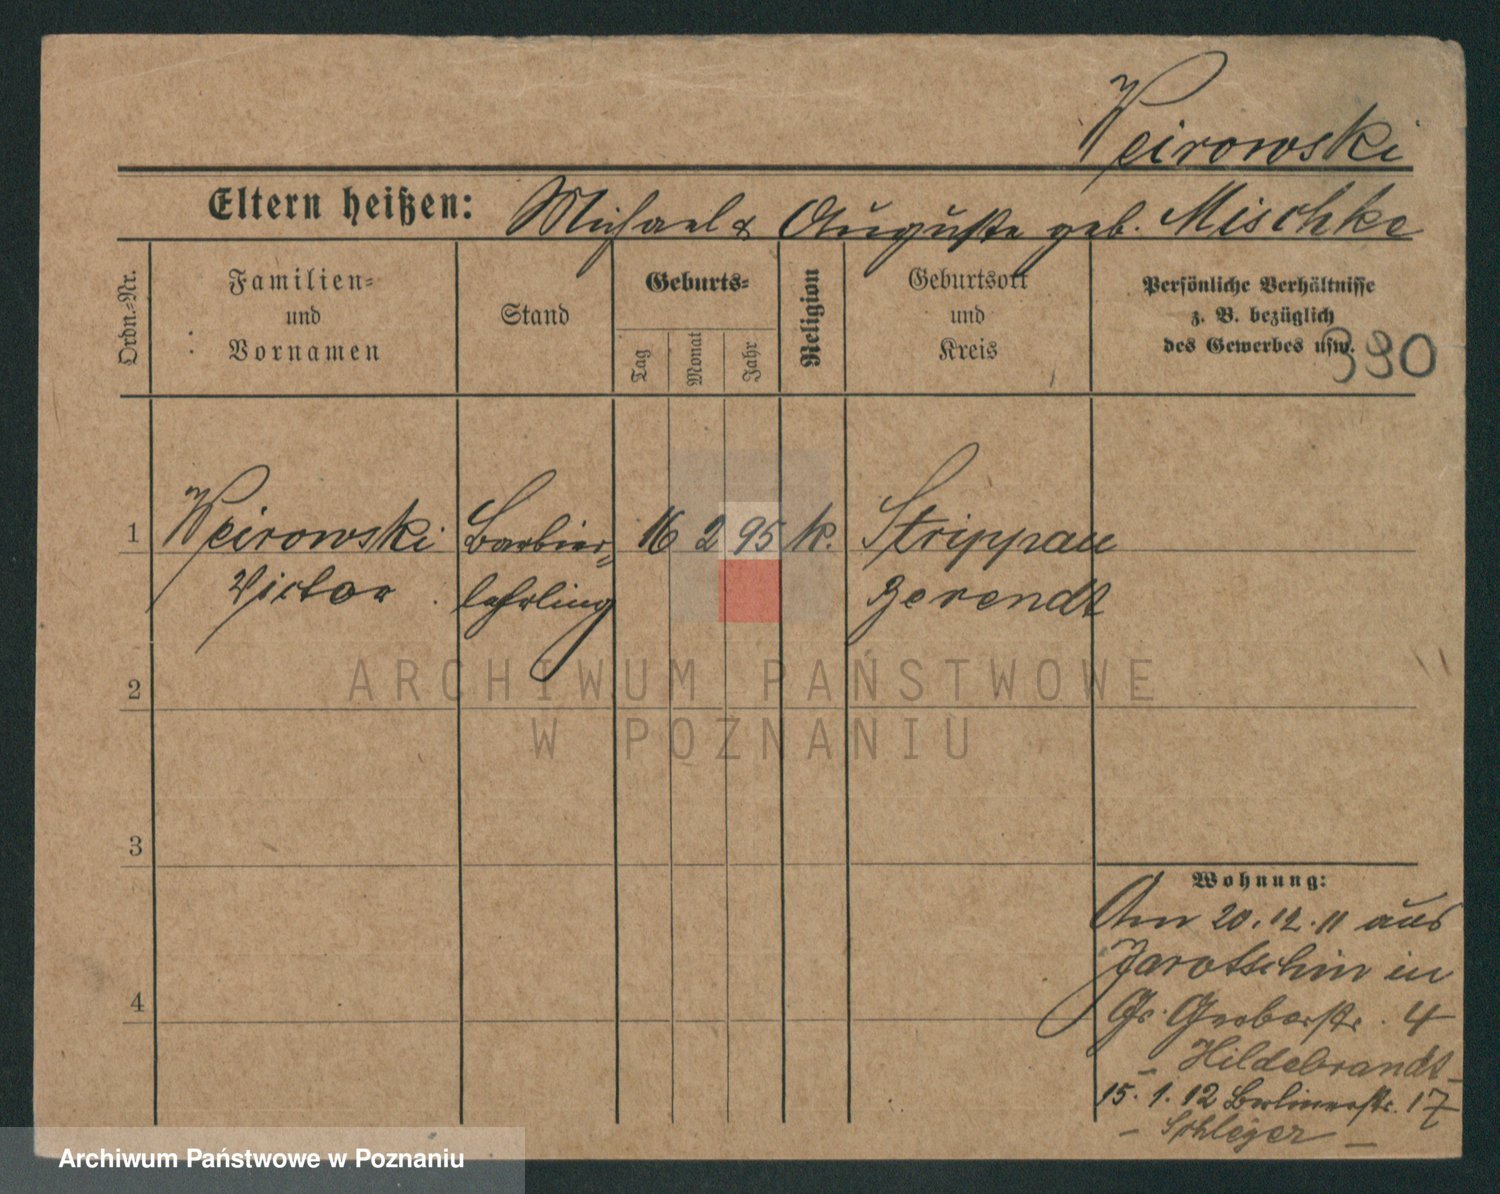 Weirowski
Eltern heißen: Michael & Auguste geb. Mischke
Ordn.-Nr.
Familien-
und
Vornamen
Stand
Geburts-
Tag
Monat
Jahr
Religion
Geburtsort
und
Kreis
Persönliche Verhältnisse
z. B. bezüglich
des Gewerbes usw.
390
1 Weirowski Barbier- 16 2 95 k. Strippau
Victor lehrling Berendt
2
3
4
Wohnung:
Am 20.12.11 aus
Jarotschin in
Gr. Gerberstr. 4
- Hildebrandt -
15. 1. 12 Berlinerstr. 17
- Schleger -
ARCHIWUM PAŃSTWOWE
W POZNANIU
Archiwum Państwowe w Poznaniu